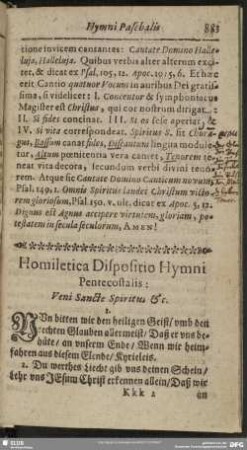 Hymni Paschalis 881
tione invicem cansantes: Cantate Domino Halle-
luja, Halleluja. Quibus verbis alter alterum exci-
tet, & dicat ex Psal. 105, 12. Apoc. 19, 5, 6. Et hæc
erit Cantio quatuor Vocum in auribus Dei gratis-
sima, si videlicet: I. Concentor & symphoniacus
Magister est Christus, qui cor nostrum dirigat.
II. Si fides concinat. III. Si os sese aperiat, &
IV. Si vita correspondeat. Spiritus S. sit
Bassum canat fides, Discantum lingua module-
tur, Altum pœnitentia vera canter, Tenorem te-
neat vita decora, secundum verbi divini teno-
rem. Atque sic Cantate Domino Canticum novum,
Psal. 149, 1. Omnis Spiritus laudet Christum victo-
rem gloriosum, Psal. 150. v. ult. dicat ex Apoc. 5, 12.
Dignus est Agnus accipere virtutem, gloriam, po-
testatem in secula seculorum, AMEN!
Homiletica Dispositio Hymni
Pentecostalis:
Veni Sancte Spiritus &c.
1.
NUn bitten wir den heiligen Geist/ umb den
rechten Glauben allermeist/ Daß er uns be-
hüte/ an unserm Ende/ Wenn wir heim-
fahren aus diesem Elende/ Kyrieleis.
2. Du werthes Liecht gib uns deinen Schein/
Lehr uns JEsum Christ erkennen allein/ Daß wir
Kkk 2 an